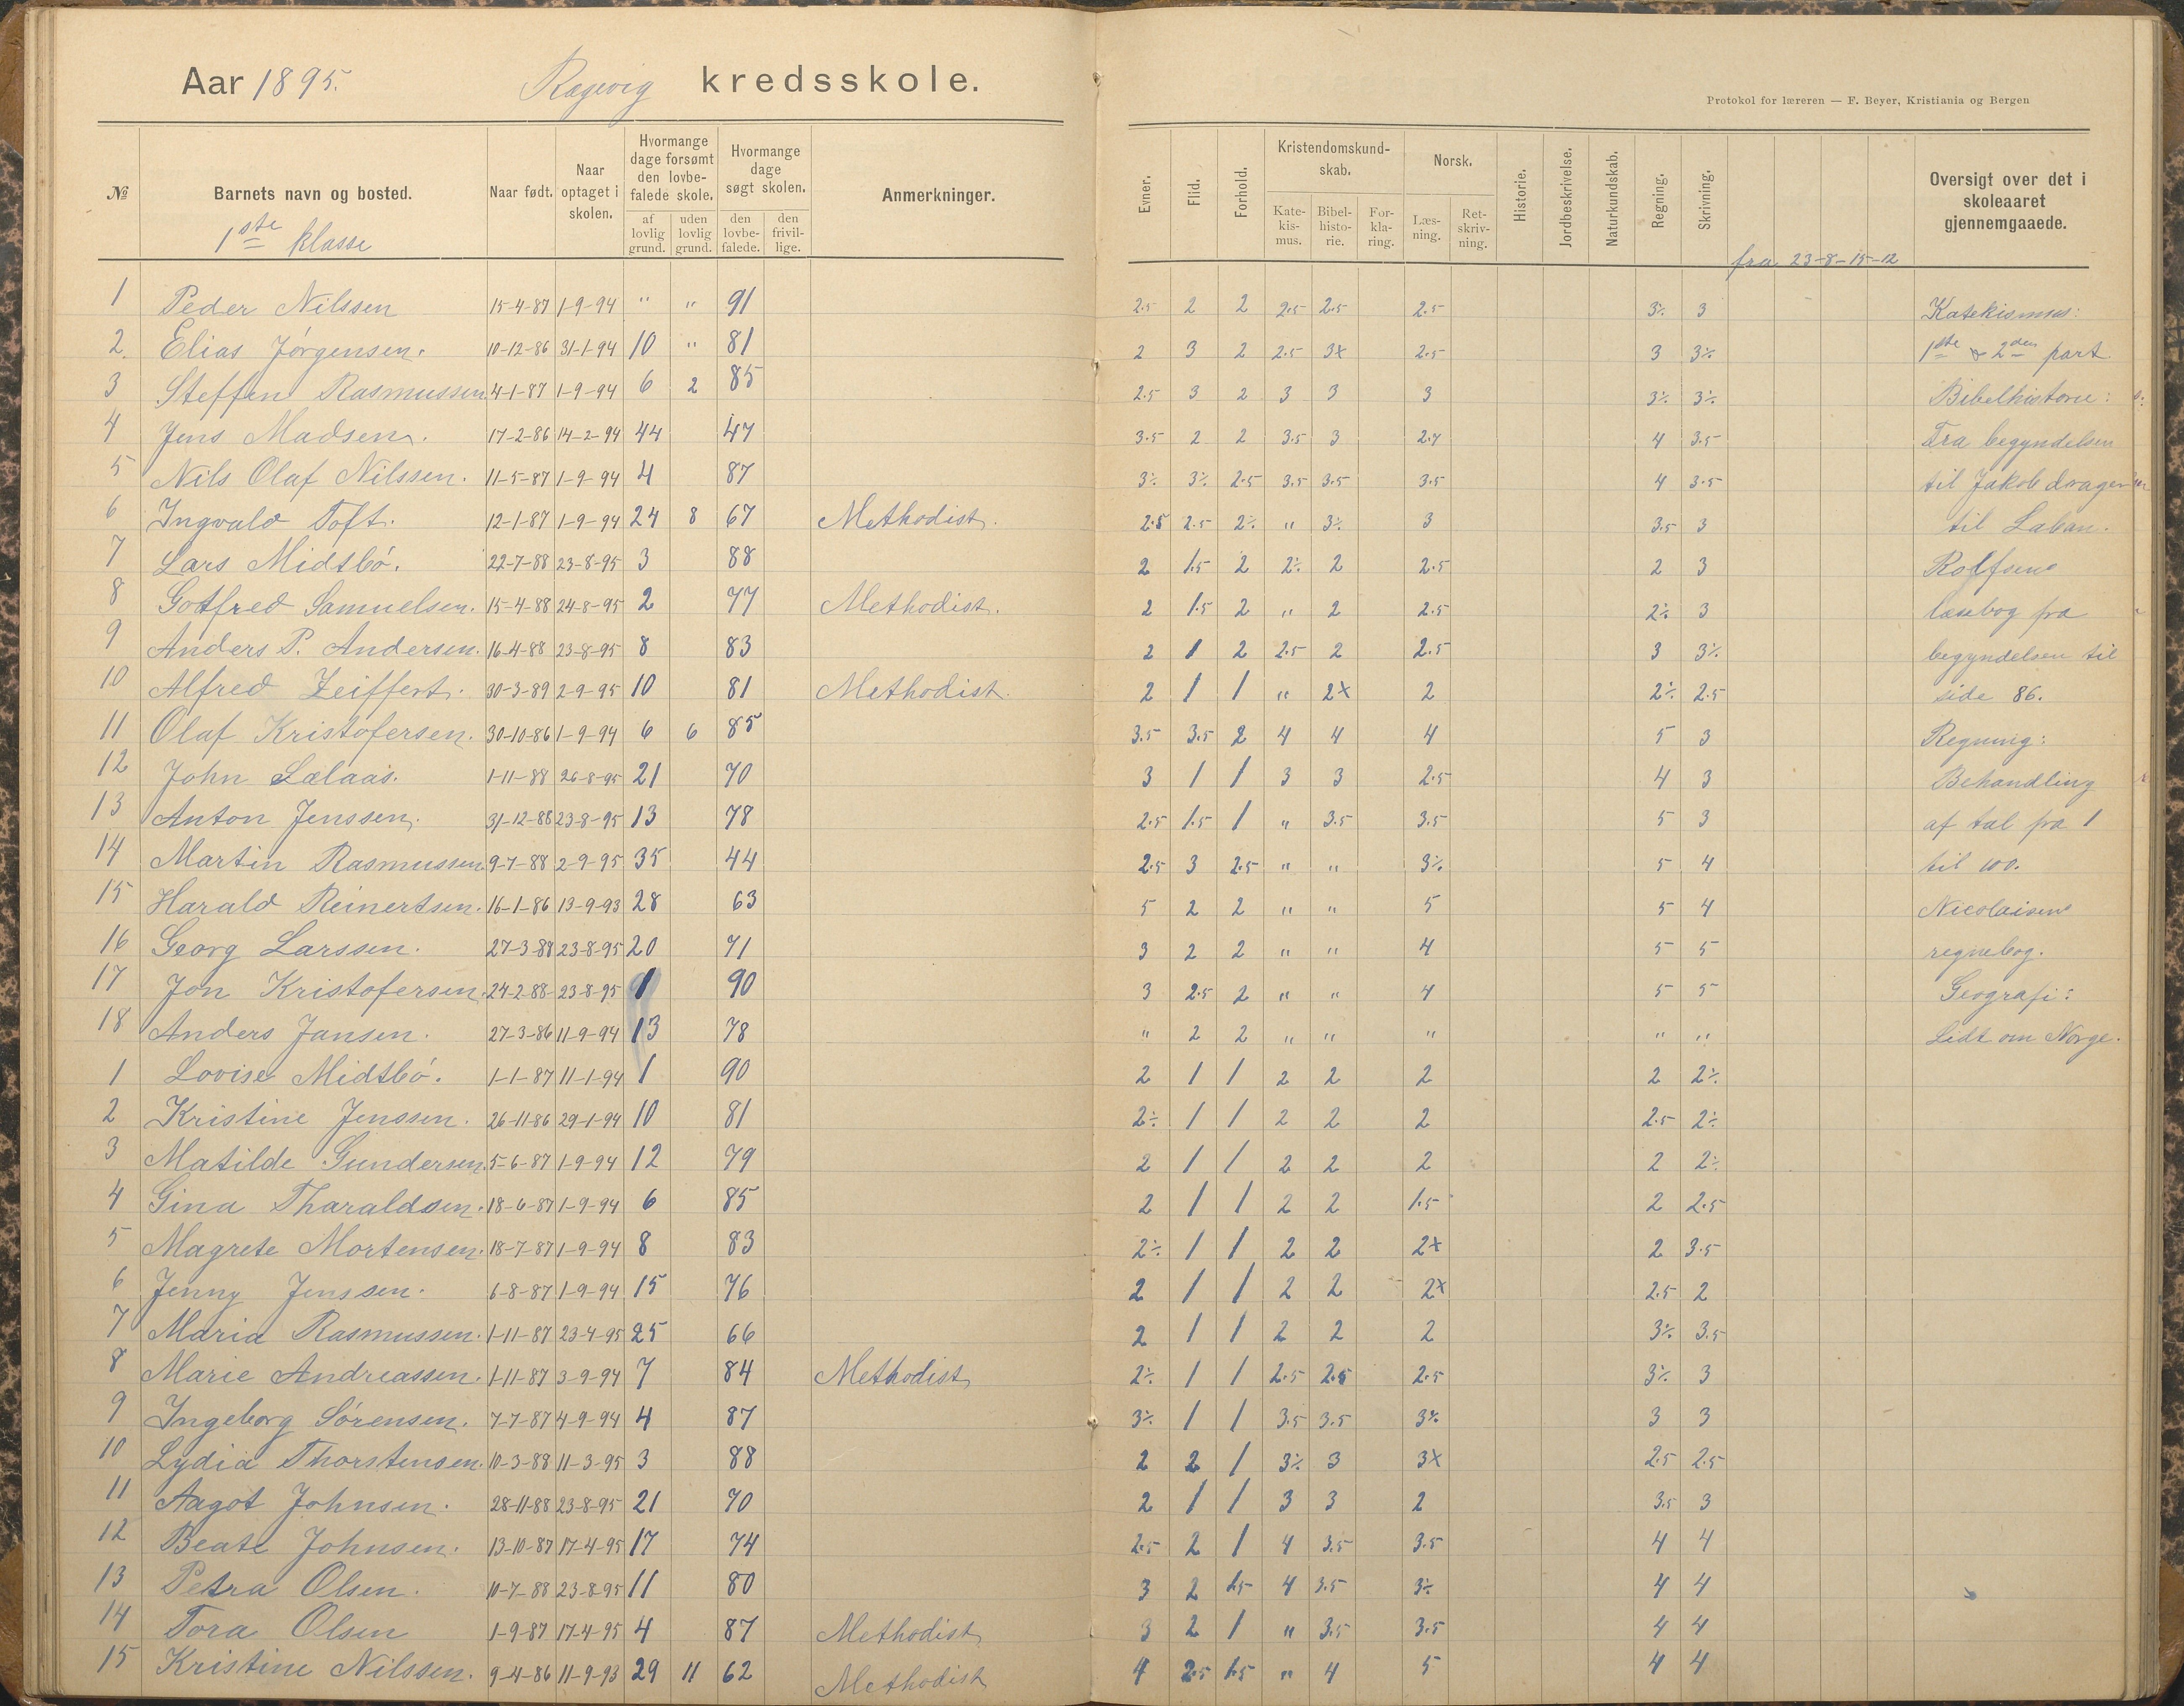 Aar 1895. Ragevig kredsskole.
Protokol for læreren — F. Beyer, Kristiania og Bergen
№ Barnets navn og bosted. Naar født. Naar optaget i skolen. Hvormange dage forsømt den lovbefalede skole. af lovlig grund. uden lovlig grund. Hvormange dage søgt skolen. den lovbefalede. den frivillige. Anmerkninger. Evner. Flid. Forhold. Kristendomskundskab. Katekismus. Bibelhistorie. Forklaring. Norsk. Læsning. Retskrivning. Historie. Jordbeskrivelse. Naturkundskab. Regning. Skrivning. Oversigt over det i skoleaaret gjennemgaaede.
1ste klasse fra 23-8-15-12
1 Peder Nilssen 15-4-87 1-9-94 " " 91 2.5 2 2 2.5 2.5 2.5 3÷ 3 Katekismus:
2. Elias Jörgensen. 10-12-86 31-1-94 10 " 81 2 3 2 2.5 3x 2.5 3 3÷ 1ste & 2den part.
3 Steffen Rasmussen 4-1-87 1-9-94 6 2 85 2.5 3 2 3 3 3 3÷ 3÷ Bibelhistorie:
4 Jens Madsen. 17-2-86 14-2-94 44 47 3.5 2 2 3.5 3 2.7 4 3.5 Fra begyndelsen
5 Nils Olaf Nilssen. 11-5-87 1-9-94 4 87 3÷ 3÷ 2.5 3.5 3.5 3.5 4 3.5 til Jakob drager
6 Ingvald Toft. 12-1-87 1-9-94 24 8 67 Methodist. 2.5 2.5 2÷ " 3÷ 3 3.5 3 til Laban.
7 Lars Midtbö. 22-7-88 23-8-95 3 88 2 1.5 2 2÷ 2 2.5 2 3 Rolfsens
8 Gotfred Samuelsen. 15-4-88 24-8-95 2 77 Methodist. 2 1.5 2 " 2 2.5 2÷ 3 læsebog fra
9 Anders P. Andersen. 16-4-88 23-8-95 8 83 2 1 2 2.5 2 2.5 3 3÷ begyndelsen til
10 Alfred Zeiffert. 30-3-89 2-9-95 10 81 Methodist. 2 1 1 " 2x 2 2÷ 2.5 side 86.
11 Olaf Kristofersen. 30-10-86 1-9-94 6 6 85 3.5 3.5 2 4 4 4 5 3 Regning:
12 John Lælaas. 1-11-88 26-8-95 21 70 3 1 1 3 3 2.5 4 3 Behandling
13 Anton Jenssen. 31-12-88 23-8-95 13 78 2.5 1.5 1 " 3.5 3.5 5 3 af tal fra 1
14 Martin Rasmussen 9-7-88 2-9-95 35 44 2.5 3 2.5 " " 3÷ 5 4 til 100.
15 Harald Reinertsen. 16-1-86 13-9-93 28 63 5 2 2 " " 5 5 4 Nicolaisens
16 Georg Larssen. 27-3-88 23-8-95 20 71 3 2 2 " " 4 5 5 regnebog.
17 Jon Kristofersen. 24-2-88 23-8-95 1 90 3 2.5 2 " " 4 5 5 Geografi:
18 Anders Jansen. 27-3-86 11-9-94 13 78 " 2 2 " " " " " Lidt om Norge.
1 Lovise Midtbö. 1-1-87 11-1-94 1 90 2 1 1 2 2 2 2 2÷
2 Kristine Jenssen. 26-11-86 29-1-94 10 81 2÷ 1 1 2 2 2 2.5 2÷
3 Matilde Gundersen. 5-6-87 1-9-94 12 79 2 1 1 2 2 2 2 2÷
4 Gina Tharaldsen. 18-6-87 1-9-94 6 85 2 1 1 2 2 1.5 2 2.5
5 Magrete Mortensen. 18-7-87 1-9-94 8 83 2÷ 1 1 2 2 2x 2 3.5
6 Jenny Jenssen. 6-8-87 1-9-94 15 76 2 1 1 2 2 2x 2.5 2
7 Maria Rasmussen. 1-11-87 23-4-95 25 66 2 1 1 2 2 2 3÷ 3.5
8 Marie Andreassen. 1-11-87 3-9-94 7 84 Methodist 2÷ 1 1 2.5 2.5 2.5 3÷ 3
9 Ingeborg Sörensen. 7-7-87 4-9-94 4 87 3÷ 1 1 3.5 3.5 3÷ 3 3
10 Lydia Thorstensen. 10-3-88 11-3-95 3 88 2 2 1 3÷ 3 3x 2.5 2.5
11 Aagot Johnsen. 28-11-88 23-8-95 21 70 2 1 1 3 3 2 3.5 3
12 Beate Johnsen. 13-10-87 17-4-95 17 74 2.5 2 1 4 3.5 3.5 4 4
13 Petra Olsen. 10-7-88 23-8-95 11 80 3 2 1.5 4 3.5 3÷ 4 4
14 Tora Olsen 1-9-87 17-4-95 4 87 Methodist 3 2 1 " 3.5 3.5 4 4
15 Kristine Nilssen. 9-4-86 11-9-93 29 11 62 Methodist 4 2.5 1.5 " 4 5 4 4